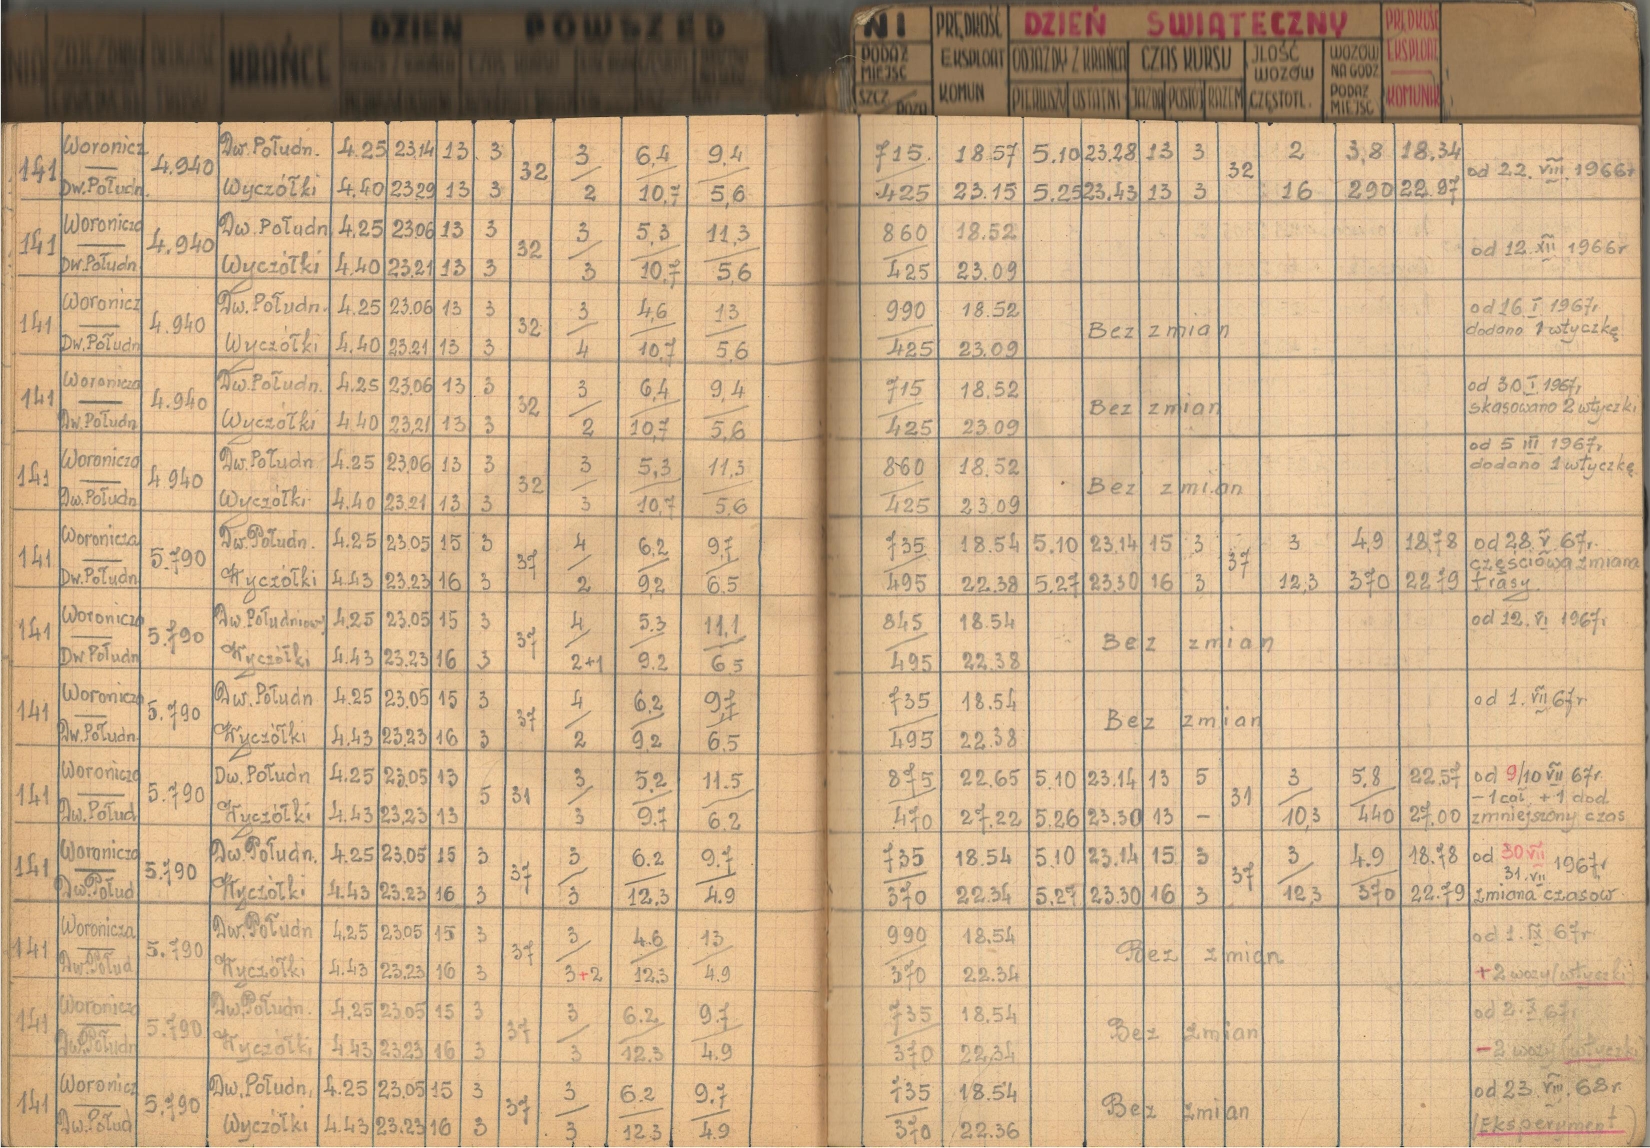 DZIEŃ POWSZED
KRAŃCE
NI PRĘDKOŚĆ DZIEŃ ŚWIĄTECZNY PRĘDKOŚĆ
PODAŻ MIEJSC EKSPLOAT ODJAZDY Z KRAŃCA CZAS KURSU JLOŚĆ WOZÓW WOZÓW NA GODZ EKSPLOAT
SZCZ POZA KOMUN PIERWSZY OSTATNI JAZDA POSTÓJ RAZEM CZĘSTOTL. PODAŻ MIEJSC KOMUNIK
141 Woronicz 4.940 Dw.Połudn. 4.25 23.14 13 3 32 3 6,4 9,4 715 18.57 5.10 23.28 13 3 32 2 3,8 18.34 od 22.VIII.1966r
Dw.Połudn. Wyczółki 4.40 23.29 13 3 2 10,7 5,6 425 23.15 5.25 23.43 13 3 16 290 22.97
141 Woronicza 4.940 Dw.Połudn 4.25 23.06 13 3 32 3 5,3 11,3 860 18.52 od 12.XII 1966r
Dw.Połudn Wyczółki 4.40 23.21 13 3 3 10,7 5,6 425 23.09
141 Woronicz 4.940 Dw.Połudn. 4.25 23.06 13 3 32 3 4,6 13 990 18.52 Bez zmian od 16 I 1967r
Dw.Połudn Wyczółki 4.40 23.21 13 3 4 10,7 5,6 425 23.09 dodano 1 wtyczkę
141 Woronicza 4.940 Dw.Połudn. 4.25 23.06 13 3 32 3 6,4 9,4 715 18.52 Bez zmian od 30 I 1967r
Dw.Połudn Wyczółki 4.40 23.21 13 3 2 10,7 5,6 425 23.09 skasowano 2 wtyczki
141 Woronicza 4.940 Dw.Połudn 4.25 23.06 13 3 32 3 5,3 11,3 860 18.52 Bez zmian od 5 III 1967r
Dw.Połudn Wyczółki 4.40 23.21 13 3 3 10,7 5,6 425 23.09 dodano 1 wtyczkę
141 Woronicza 5.790 Dw.Połudn. 4.25 23.05 15 3 37 4 6.2 9,7 735 18.54 5.10 23.14 15 3 37 3 4,9 18,78 od 28.V.67r.
częściowa zmiana
Dw.Połudn Wyczółki 4.43 23.23 16 3 2 9.2 6.5 495 22.38 5.27 23.30 16 3 12,3 370 22.79 trasy.
141 Woronicza 5.790 Dw.Południowy 4.25 23.05 15 3 37 4 5.3 11,1 845 18.54 Bez zmian od 12.VI 1967r
Dw Połudn Wyczółki 4.43 23.23 16 3 2+1 9.2 6.5 495 22.38
141 Woronicza 5.790 Dw.Połudn 4.25 23.05 15 3 37 4 6.2 9,7 735 18.54 Bez zmian od 1.VII 67r
Dw.Połudn Wyczółki 4.43 23.23 16 3 2 9.2 6.5 495 22.38
141 Woronicza 5.790 Dw.Połudn 4.25 23.05 13 5 31 3 5,2 11.5 875 22.65 5.10 23.14 13 5 31 3 5,8 22.57 od 9/10 VII 67r.
-1 cał +1 dod.
Dw.Połud Wyczółki 4.43 23.23 13 3 9.7 6.2 470 27.22 5.26 23.30 13 - 10,3 440 27.00 zmniejszony czas
141 Woronicza 5.790 Dw.Połudn. 4.25 23.05 15 3 37 3 6.2 9.7 735 18.54 5.10 23.14 15 3 37 3 4.9 18.78 od 30 VII 31.VII 1967r
Dw.Połud Wyczółki 4.43 23.23 16 3 3 12,3 4.9 370 22.34 5,27 23.30 16 3 12,3 370 22.79 zmiana czasow
141 Woronicza 5.790 Dw.Połudn 4.25 23.05 15 3 37 3 4.6 13 990 18.54 Bez zmian od 1.IX 67r
Dw.Połud Wyczółki 4.43 23.23 16 3 3+2 12.3 4.9 370 22.34 +2 wozy/wtyczki
141 Woronicza 5.790 Dw.Połudn. 4.25 23.05 15 3 37 3 6.2 9.7 735 18.54 Bez zmian od 2.X 67r
Dw.Połudn Wyczółki 4.43 23.23 16 3 3 12.3 4.9 370 22,34 -2 wozy/wtyczki
141 Woronicz 5.790 Dw.Połudn, 4.25 23.05 15 3 37 3 6.2 9.7 735 18.54 Bez zmian od 23.VIII.68r.
Dw.Połud Wyczółki 4.43 23.23 16 3 3 12.3 4.9 370 22.36 (Eksperyment